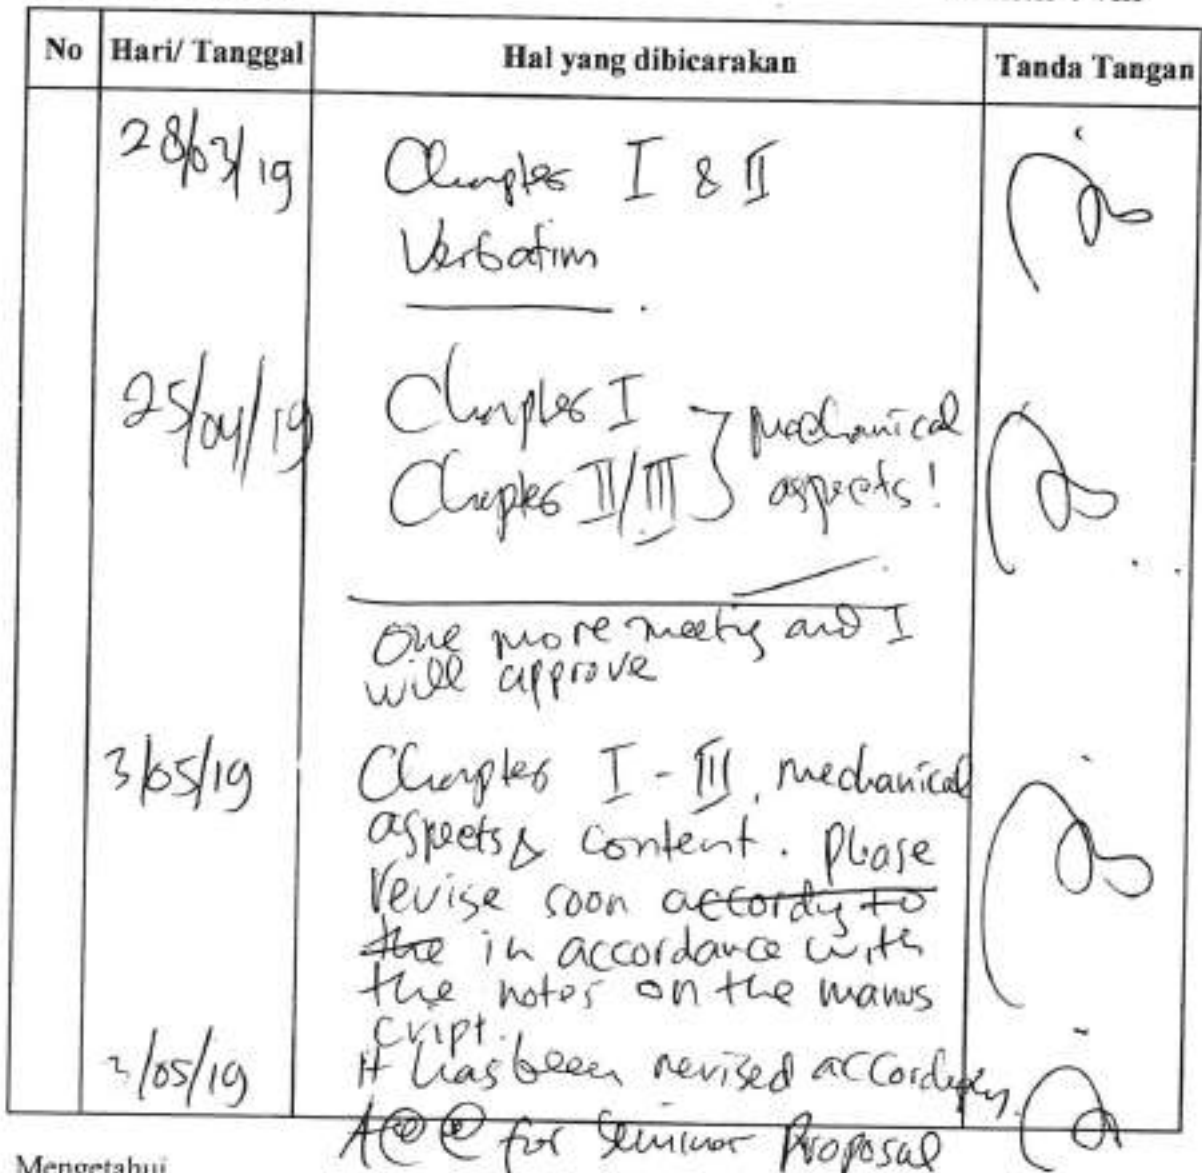 No Hari/ Tanggal Hal yang dibicarakan Tanda Tangan
28/03/19 Chapter I & II
Verbatim
25/04/19 Chapter I
Chapter II/III } mechanical
aspects!
One more meeting and I
will approve
3/05/19 Chapter I - III, mechanical
aspects & content. Please
revise soon according to
the in accordance with
the notes on the manus
cript.
3/05/19 It has been revised accordingly.
A@@ for Seminar Proposal
Mengetahui